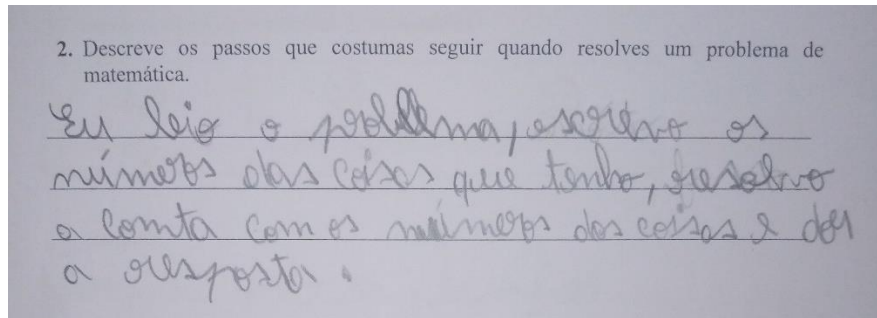 2. Descreve os passos que costumas seguir quando resolves um problema de
matemática.
Eu leio o problema, escrevo os
números das coisas que tenho, resolvo
a conta com os números das coisas e dou
a resposta.